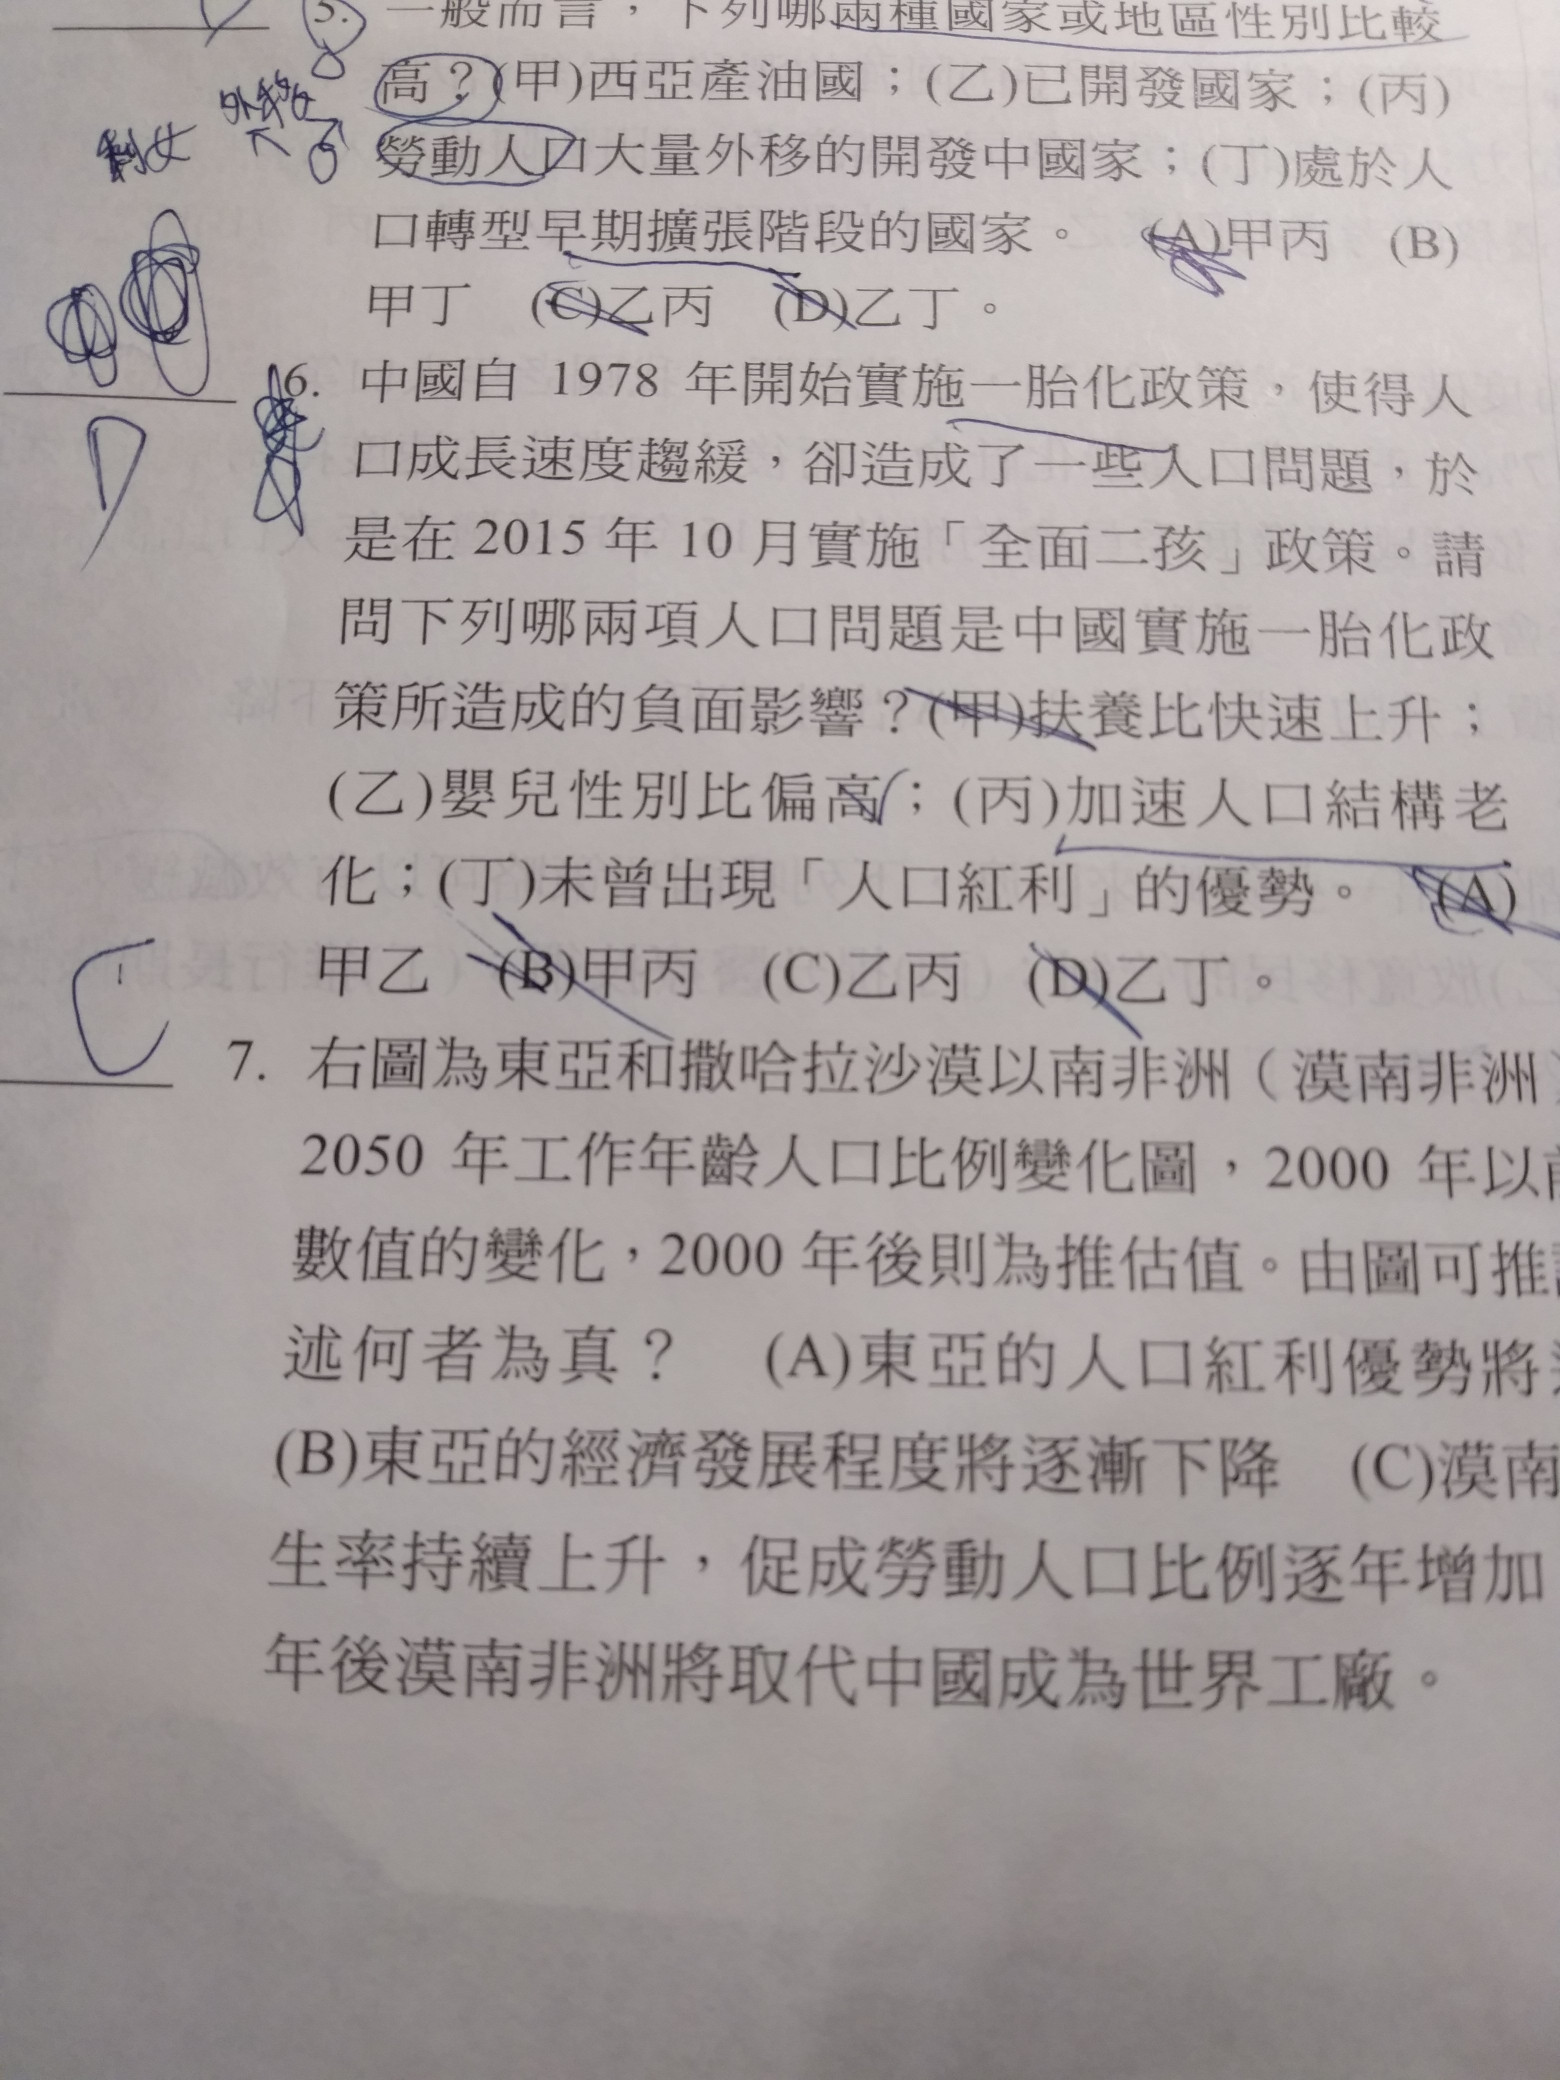 5. 一般而言，下列哪兩種國家或地區性別比較
高？(甲)西亞產油國；(乙)已開發國家；(丙)
勞動人口大量外移的開發中國家；(丁)處於人
口轉型早期擴張階段的國家。 (A)甲丙 (B)
甲丁 (C)乙丙 (D)乙丁。
外移
剩女
D
6. 中國自 1978 年開始實施一胎化政策，使得人
口成長速度趨緩，卻造成了一些人口問題，於
是在 2015 年 10 月實施「全面二孩」政策。請
問下列哪兩項人口問題是中國實施一胎化政
策所造成的負面影響？(甲)扶養比快速上升；
(乙)嬰兒性別比偏高；(丙)加速人口結構老
化；(丁)未曾出現「人口紅利」的優勢。 (A)
甲乙 (B)甲丙 (C)乙丙 (D)乙丁。
C
7. 右圖為東亞和撒哈拉沙漠以南非洲（漠南非洲
2050 年工作年齡人口比例變化圖，2000 年以
數值的變化，2000 年後則為推估值。由圖可推
述何者為真？ (A)東亞的人口紅利優勢將
(B)東亞的經濟發展程度將逐漸下降 (C)漠南
生率持續上升，促成勞動人口比例逐年增加
年後漠南非洲將取代中國成為世界工廠。